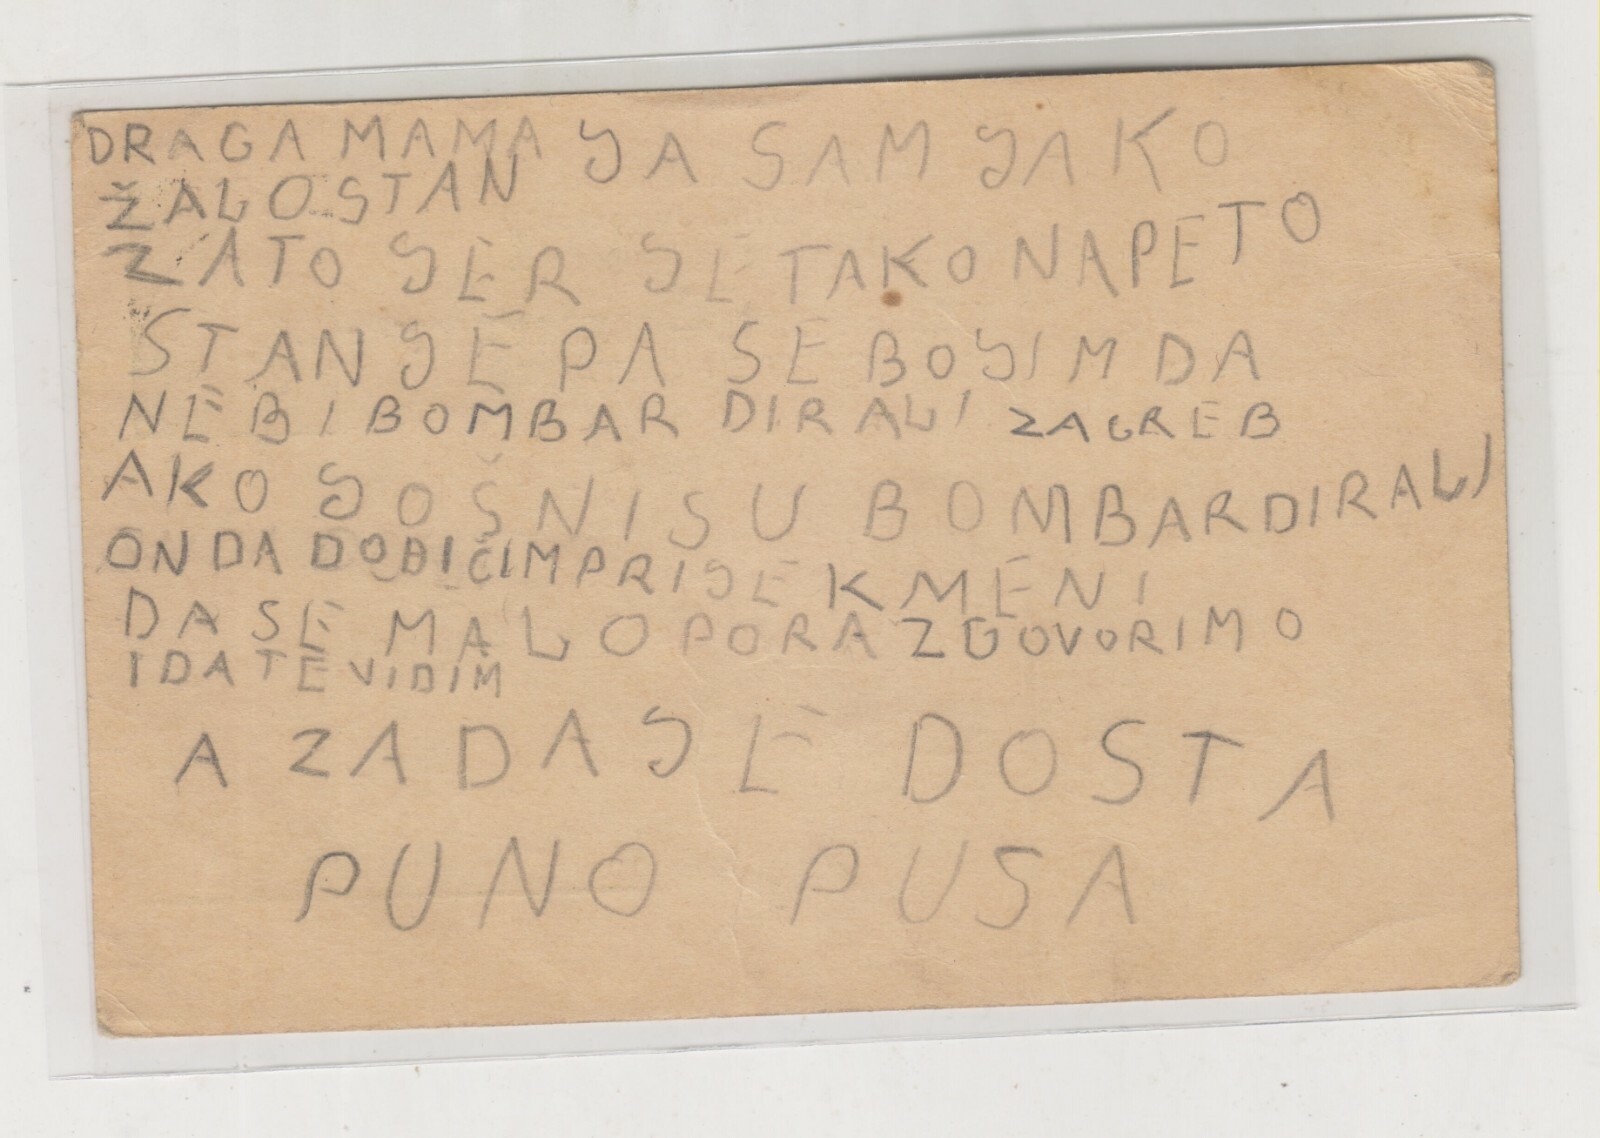 DRAGA MAMA JA SAM JAKO
ŽALOSTAN
ZATO JER JE TAKO NAPETO
STANJE PA SE BOJIM DA
NEBI BOMBARDIRALI ZAGREB
AKO JOŠ NISU BOMBARDIRALI
ONDA DOĐI ČIM PRIJE K MENI
DA SE MALO PORAZGOVORIMO
I DA TE VIDIM
A ZADA JE DOSTA
PUNO PUSA